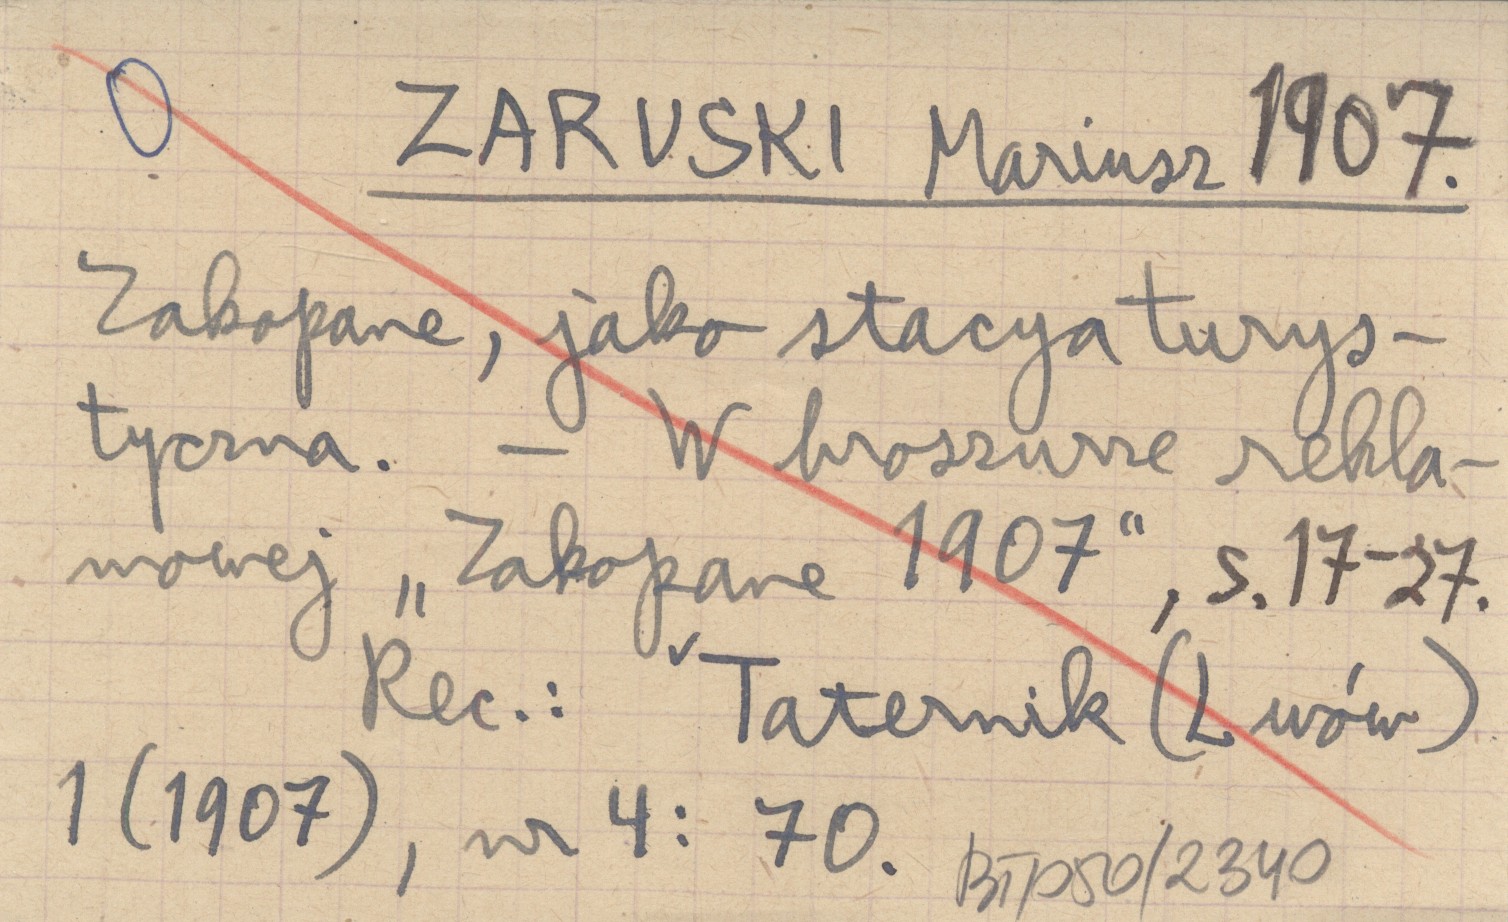 ZARUSKI Mariusz 1907.
Zakopane, jako stacya turys-
tyczna. – W broszurze rekla-
mowej „Zakopane 1907“, s. 17-27.
Rec.: Taternik (Lwów)
1 (1907), nr 4: 70.
BTP50/2340